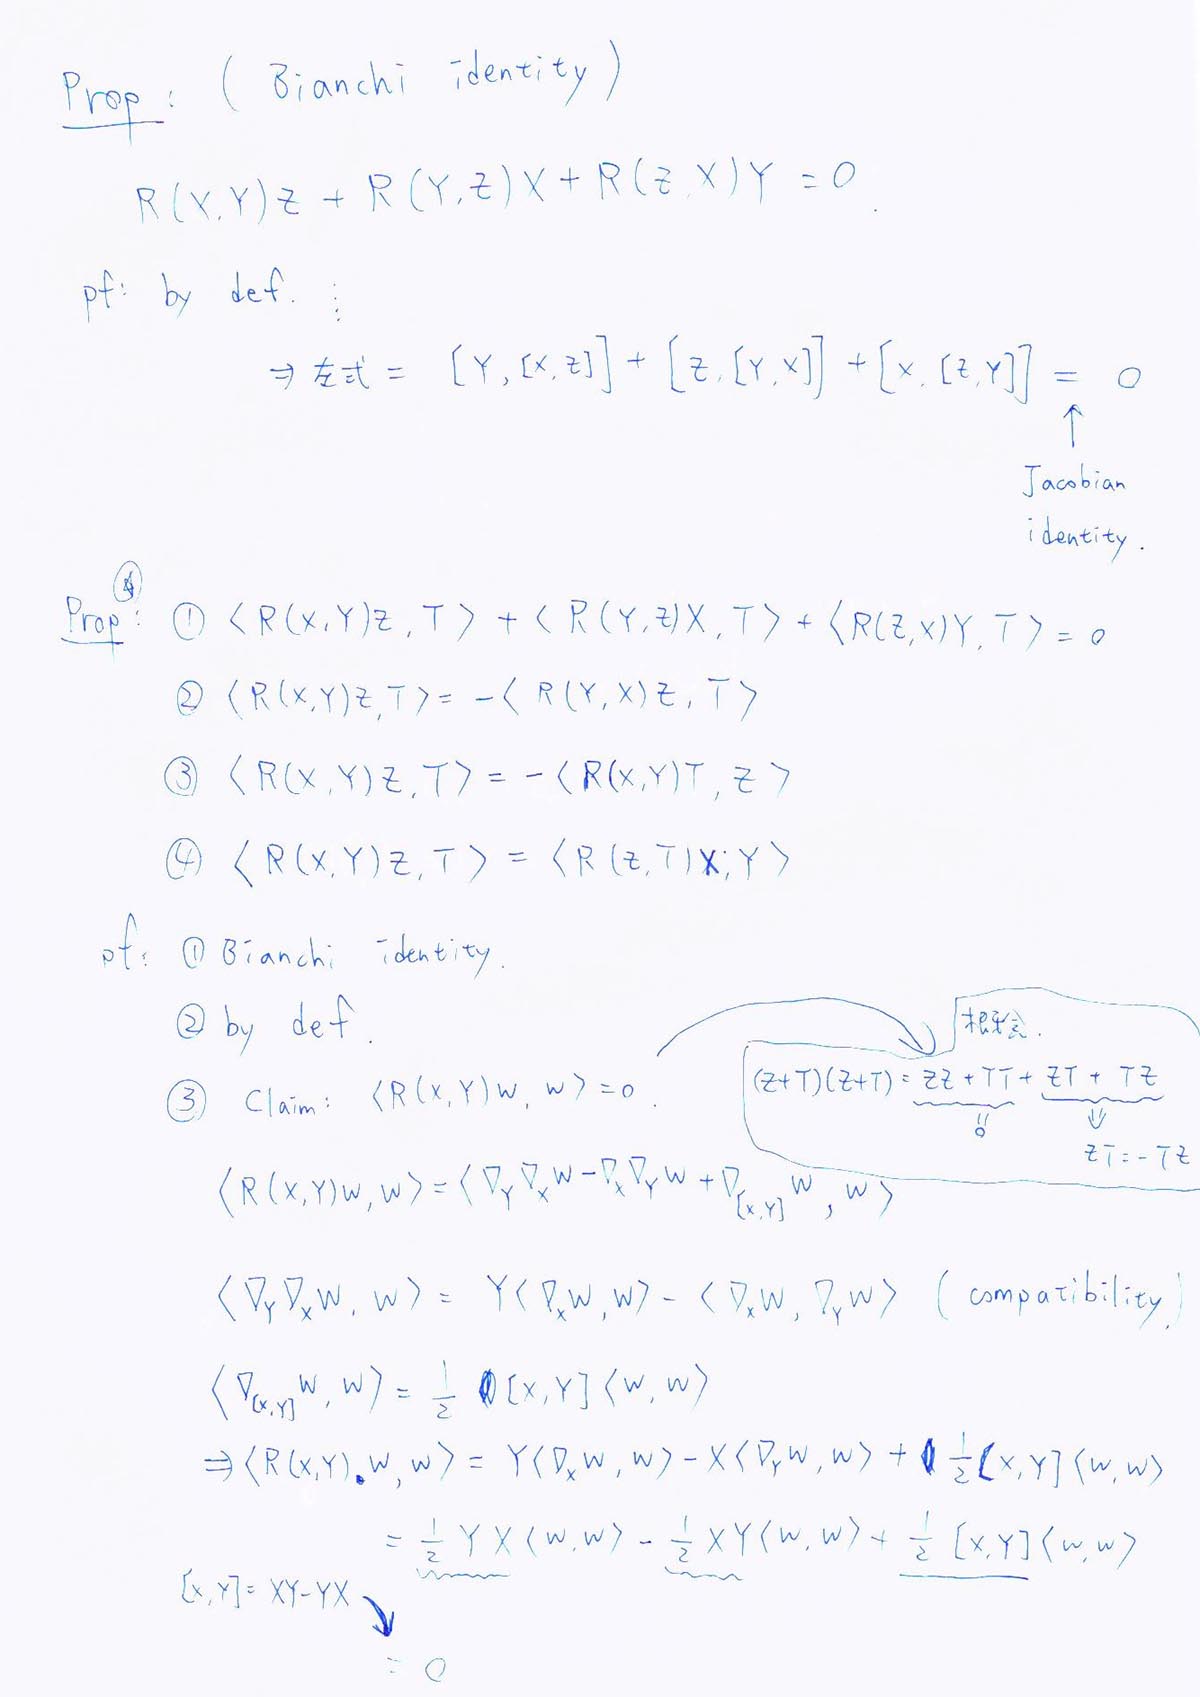 Prop: (Bianchi identity)
R(X,Y)Z + R(Y,Z)X + R(Z,X)Y = 0.
pf: by def. ⋮
⇒ 左式 = [Y,[X,Z]] + [Z,[Y,X]] + [X,[Z,Y]] = 0
↑
Jacobian
identity.
Prop: ① ⟨R(X,Y)Z,T⟩ + ⟨R(Y,Z)X,T⟩ + ⟨R(Z,X)Y,T⟩ = 0
② ⟨R(X,Y)Z,T⟩ = -⟨R(Y,X)Z,T⟩
③ ⟨R(X,Y)Z,T⟩ = -⟨R(X,Y)T,Z⟩
④ ⟨R(X,Y)Z,T⟩ = ⟨R(Z,T)X,Y⟩
pf: ① Bianchi identity.
② by def.
③ Claim: ⟨R(X,Y)W,W⟩ = 0.
(Z+T)(Z+T) = ZZ + TT + ZT + TZ
0 ⇓
ZT = -TZ
⟨R(X,Y)W,W⟩ = ⟨∇_Y∇_X W - ∇_X∇_Y W + ∇_[X,Y] W, W⟩
⟨∇_Y∇_X W, W⟩ = Y⟨∇_X W, W⟩ - ⟨∇_X W, ∇_Y W⟩ (compatibility)
⟨∇_[X,Y] W, W⟩ = 1/2 [X,Y]⟨W,W⟩
⇒ ⟨R(X,Y)W,W⟩ = Y⟨∇_X W, W⟩ - X⟨∇_Y W, W⟩ + 1/2 [X,Y]⟨W,W⟩
= 1/2 YX⟨W,W⟩ - 1/2 XY⟨W,W⟩ + 1/2 [X,Y]⟨W,W⟩
[X,Y] = XY-YX
= 0